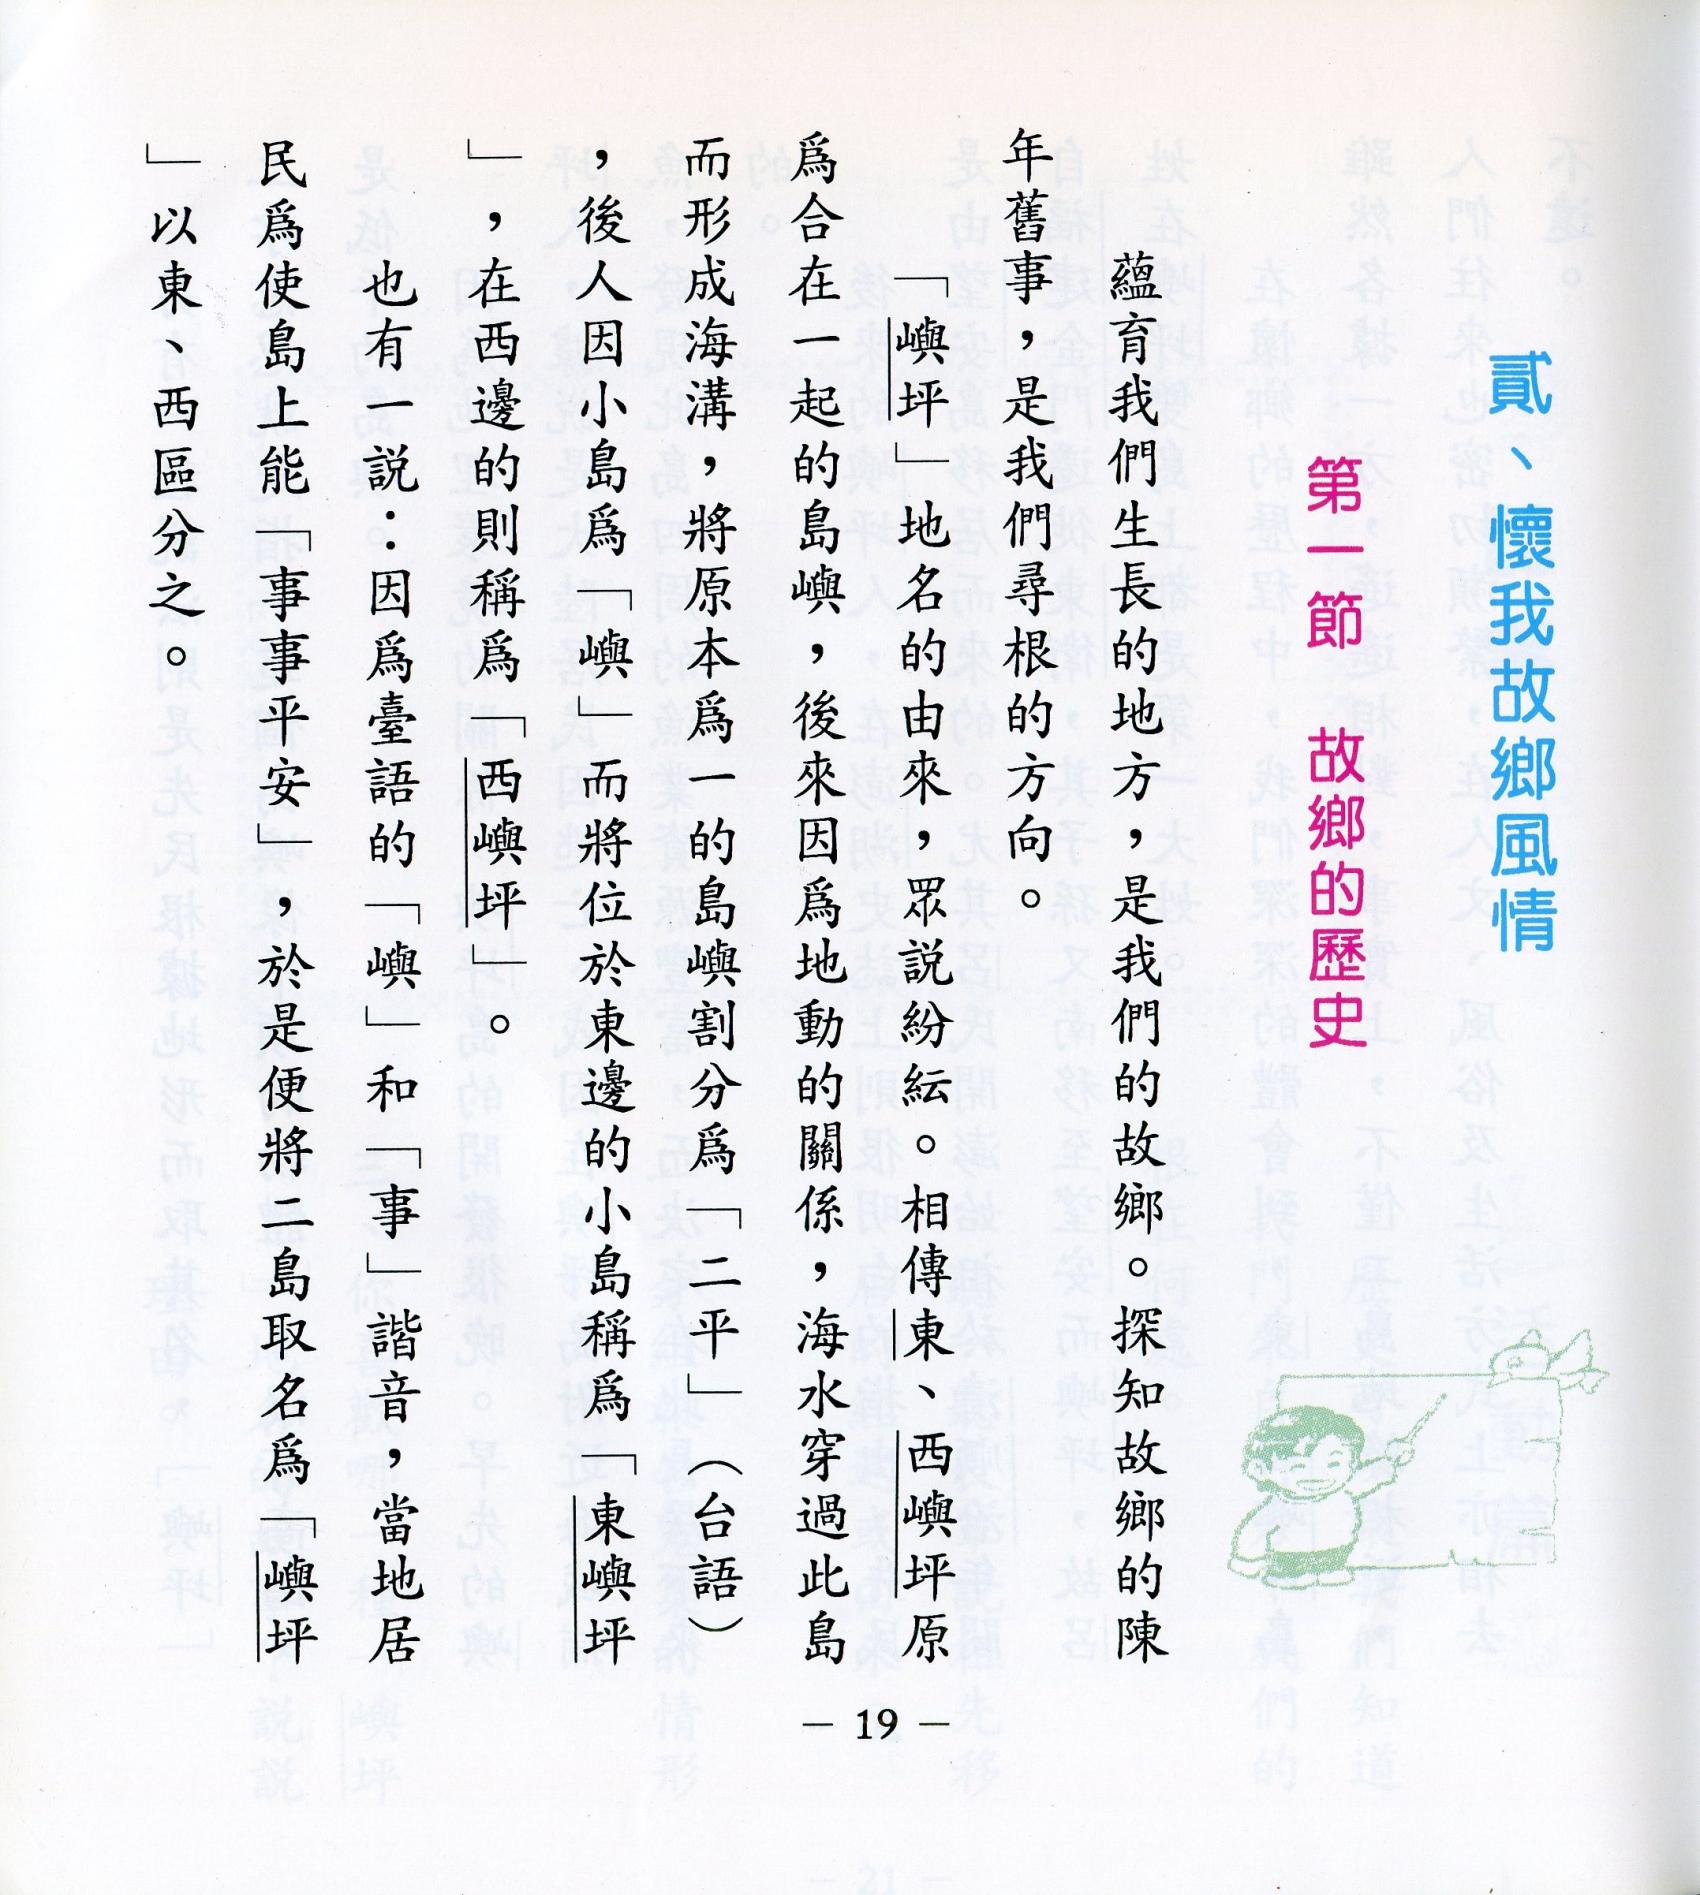 貳、懷我故鄉風情
第一節　故鄉的歷史
蘊育我們生長的地方，是我們的故鄉。探知故鄉的陳
年舊事，是我們尋根的方向。
「嶼坪」地名的由來，眾説紛紜。相傳東、西嶼坪原
爲合在一起的島嶼，後來因爲地動的關係，海水穿過此島
而形成海溝，將原本爲一的島嶼割分爲「二平」（台語）
，後人因小島爲「嶼」而將位於東邊的小島稱爲「東嶼坪
」，在西邊的則稱爲「西嶼坪」。
也有一説：因爲臺語的「嶼」和「事」諧音，當地居
民爲使島上能「事事平安」，於是便將二島取名爲「嶼坪
」以東、西區分之。
— 19 —